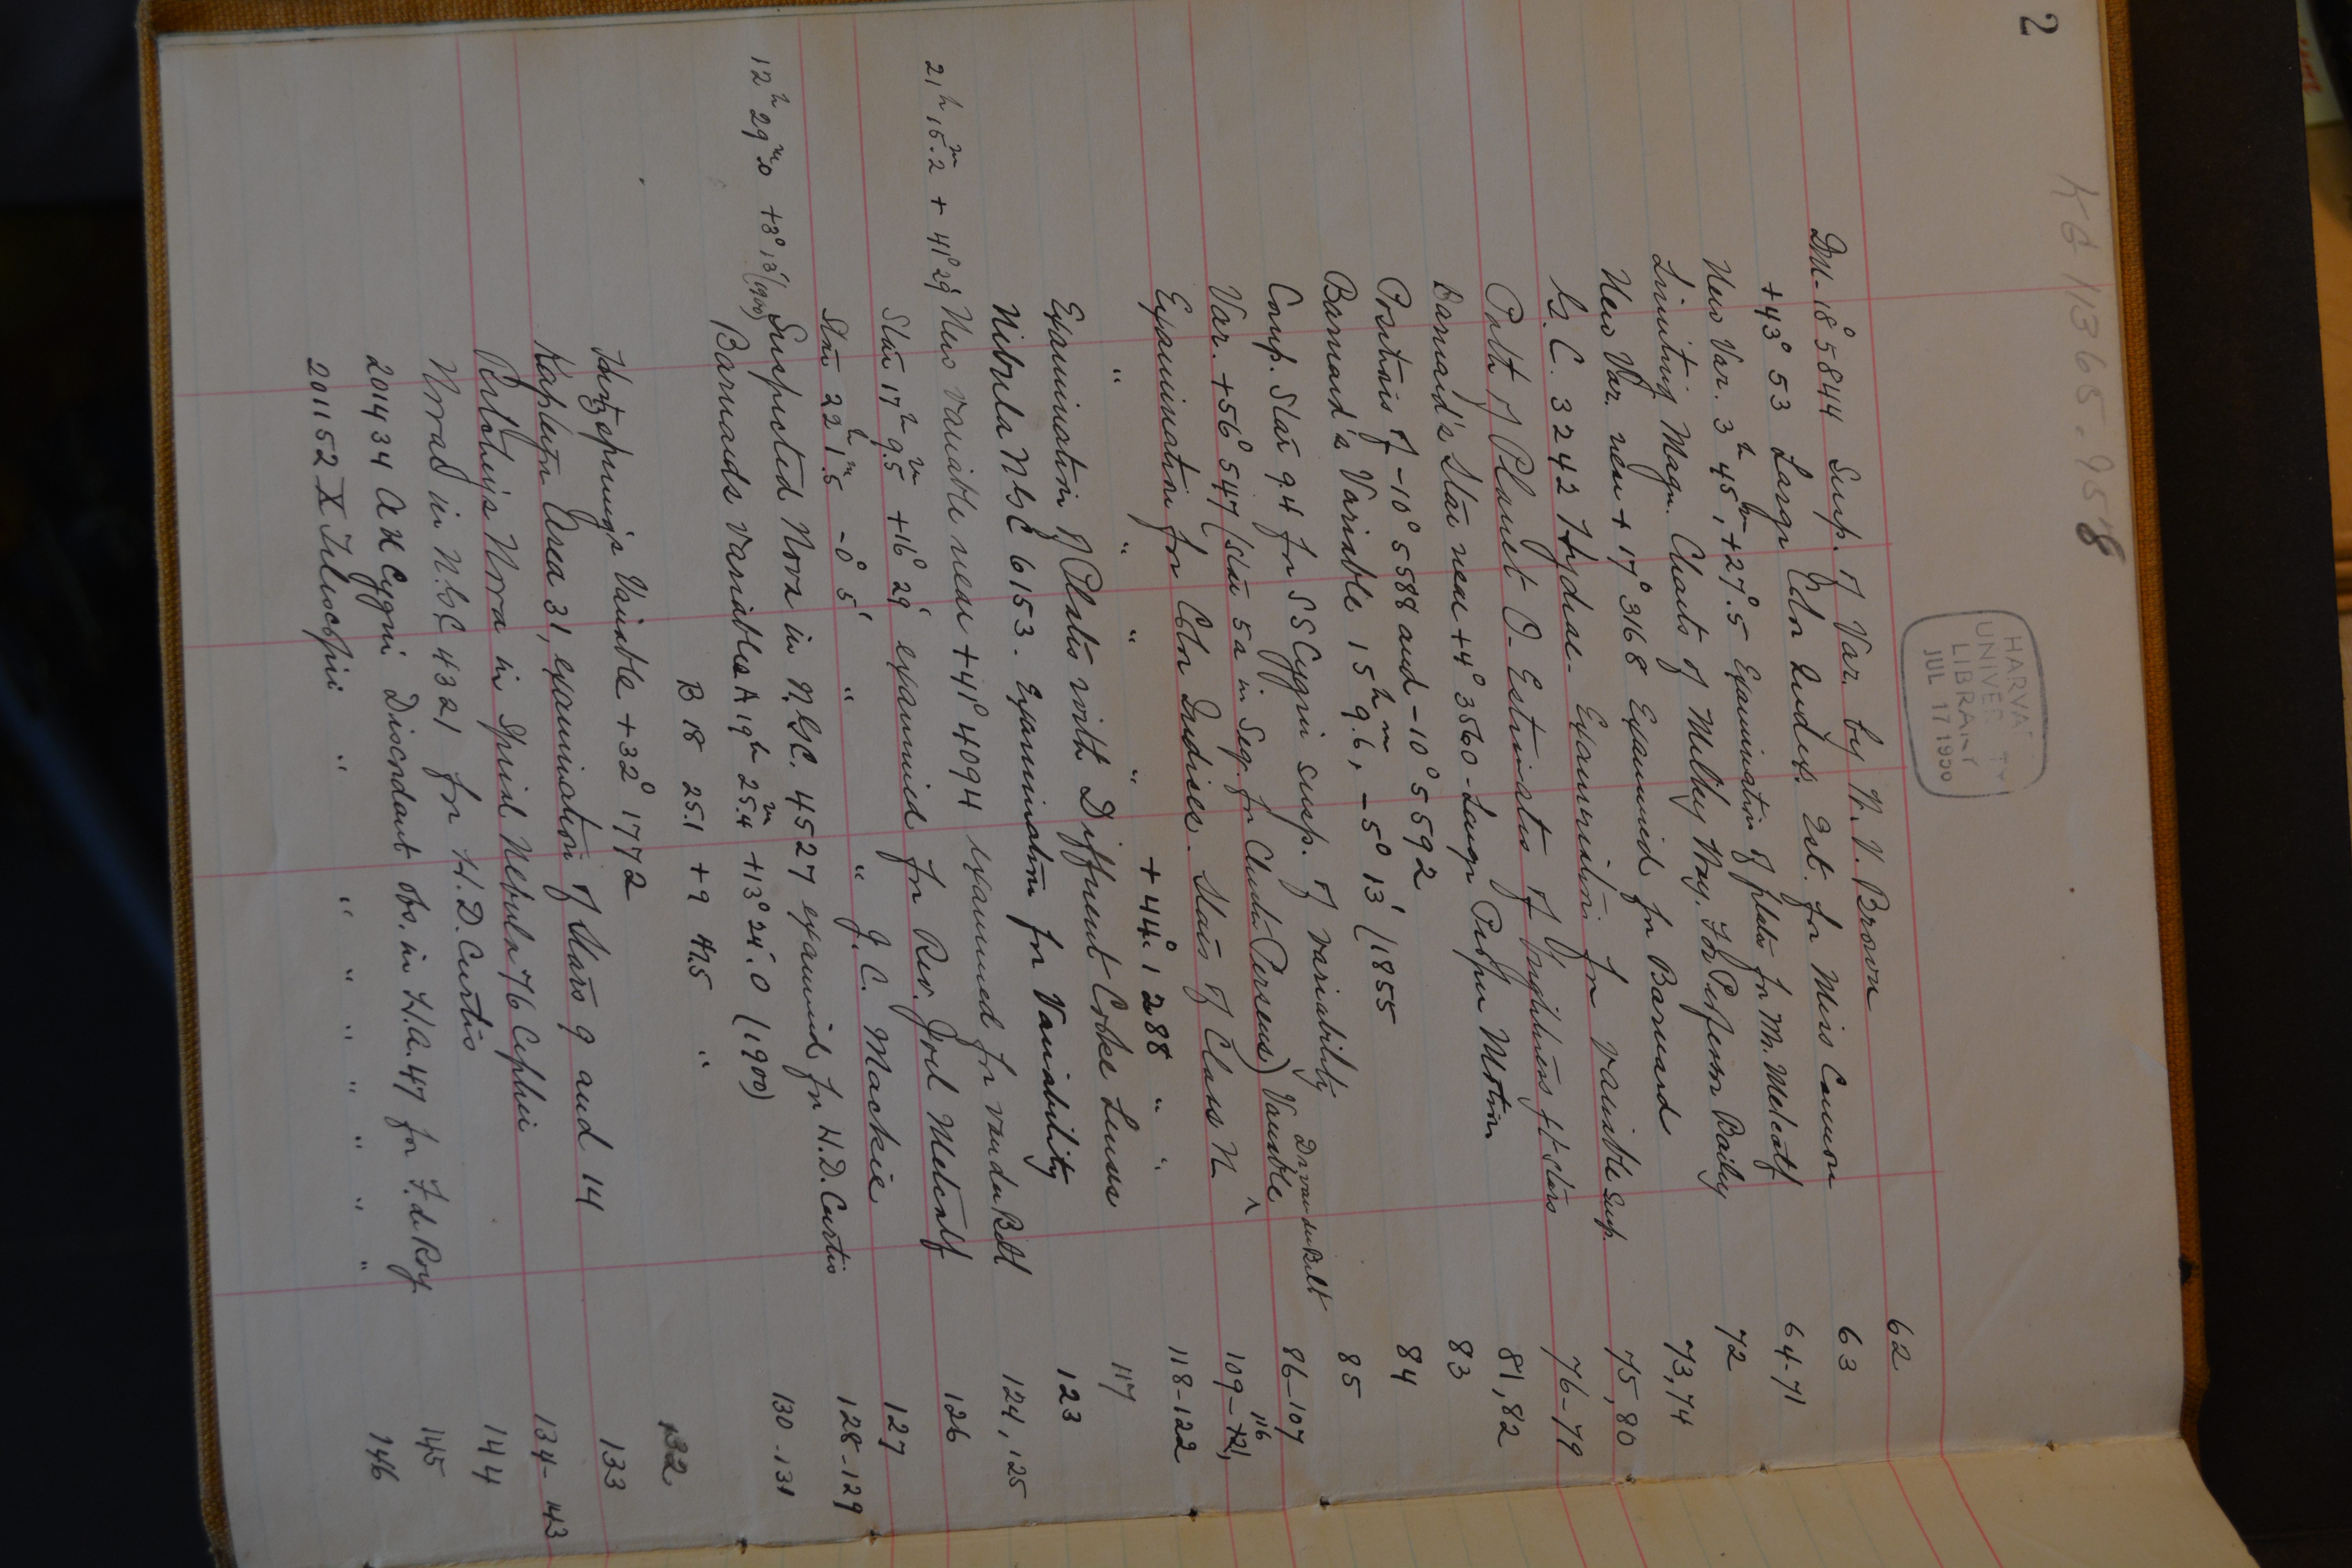 2
KG 11365.958
HARVA
UNIVER TY
LIBRARY
JUL 17 1950
DM-18° 5844 Susp. of Var. by N. V. Brown 62
+43° 53 Large Color Index. Est. for Miss Cannon 63
New Var. 3h 45m, +27°.5 Examination of plates for Mr. Metcalf 64-71
Limiting Magn. Charts of Milky Way. For Professor Bailey 72
New Var. near + 17° 3168 Examined for Barnard 73,74
N.G.C. 3242 Hydrae. Examination for variable susp. 75,80
Path of Planet O- Estimates of brightness ft stars 76-79
Barnard's Star near +4° 3560 - Large Proper Motion 81,82
Positions of -10° 5588 and -10° 5592 83
Barnard's Variable 15h 9.6m, -5° 13' (1855 84
Comp. Star 9.4 for SS Cygni susp. of variability 85
Var. +56° 547 (star 5a in Seq. for Cluster Perseus) Variable ^ Dr van der Bilt 86-107
Examination for Color Indices. Stars of Class N 109-121, 116
" " " " +44°.1288 " " 118-122
Examination of Plates with Different Cooke Lenses 117
Nebula NGC 6153. Examination for Variability 123
21h 15.2m + 41° 29' New variable near +41° 4094 examined for van der Bilt 124,125
Star 17h 9.5m +16° 29' examined for Rev. Joel Metcalf 126
Star 22h 1m.5 -0° 5' " " J. C. Mackie 127
12h 29m.0 +8° 13' (1900) Suspected Nova in N.G.C. 4527 examined for H.D. Curtis 128-129
Barnards variables A 19h 25.4m +13° 24'.0 (1900) 130-131
B 18 25.1 +9 47.5 "
Hertzsprung's Variable +32° 1772 132
Kapteyn Area 31, examination of Stars 9 and 14 133
Ritchey's Nova in Spiral Nebula 76 Cephei 134-143
Nova in N.G.C. 4321 for H.D. Curtis 144
201434 AX Cygni Discordant Obs. in H.A. 47 for F. de Roy 145
201152 X Telescopii " " " " " " " " 146